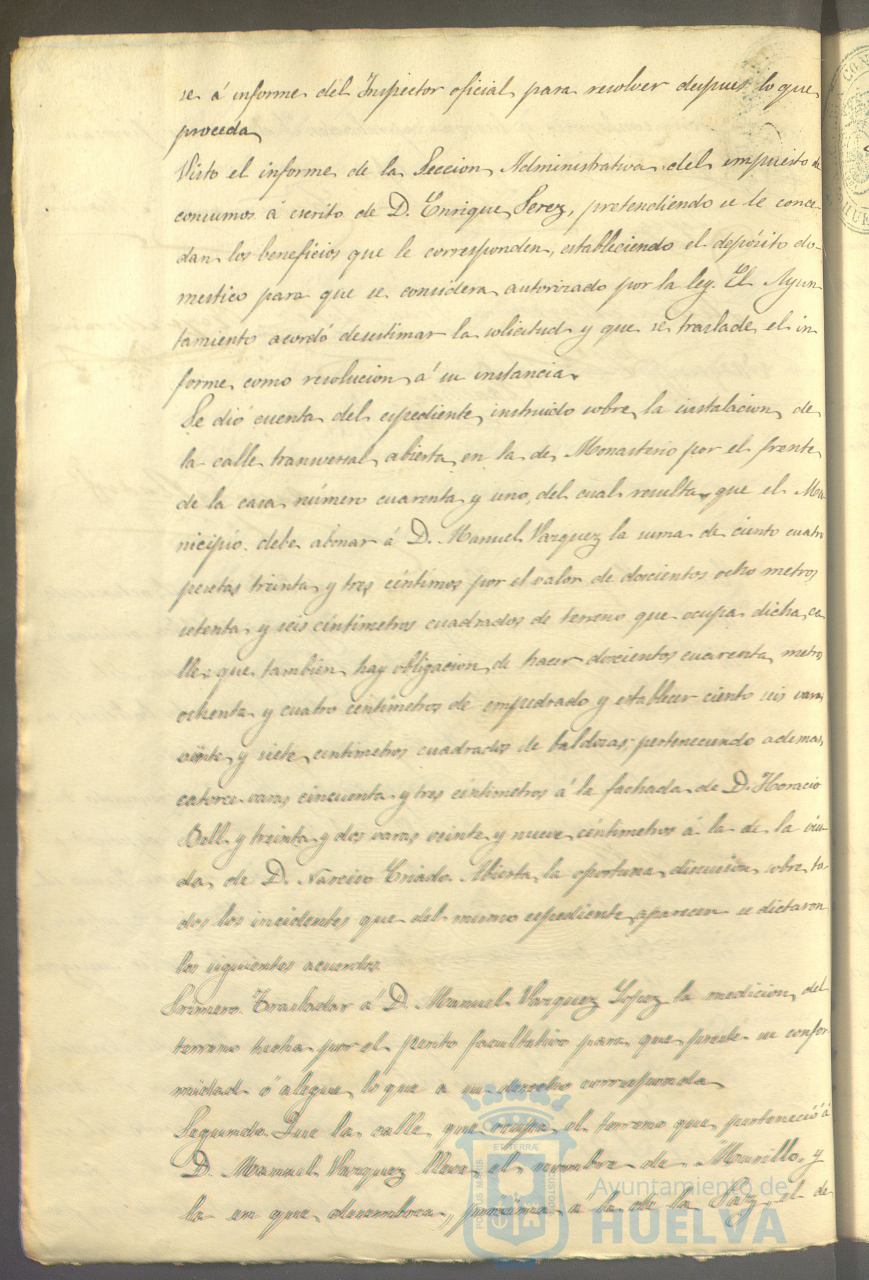 se á informe del Inspector oficial para resolver despues lo que
proceda
Visto el informe de la Seccion Administrativa del impuesto de
consumos á escrito de D. Enrique Perez, pretendiendo se le conce-
dan los beneficios que le corresponden, estableciendo el depósito do-
mestico para que se considera autorizado por la ley. El Ayun
tamiento acordó desestimar la solicitud y que se traslade el in
forme como resolucion á su instancia.
Se dió cuenta del espediente instruido sobre la instalacion de
la calle transversal abierta en la de Monasterio por el frente
de la casa número cuarenta y uno, del cual resulta que el Mu
nicipio debe abonar á D. Manuel Vazquez la suma de ciento cuatro
pesetas treinta y tres céntimos por el valor de doscientos ocho metros
setenta y seis céntimetros cuadrados de terreno que ocupa dicha ca
lle que tambien hay obligacion de hacer doscientos cuarenta metros
ochenta y cuatro céntimetros de empedrado y establecer ciento seis varas
veinte y siete centimetros cuadrados de baldozas; perteneciendo ademas
catorce varas cincuenta y tres céntimetros á la fachada de D. Horacio
Bell y treinta y dos varas veinte y nueve céntimetros á la de la viu
da de D. Narciso Criado. Abierta la oportuna discusion sobre to
dos los incidentes que del mismo espediente aparecen se dictaron
los siguientes acuerdos.
Primero. Trasladar á D. Manuel Vazquez Lopez la medicion del
terreno hecha por el perito facultativo para que preste su confor
midad ó alegue lo que a su derecho corresponda
Segundo. Que la calle que ocupa el terreno que perteneció á
D. Manuel Vazquez lleve el nombre de "Murillo" y
la en que desemboca, proxima á la de la Paz, el de
PORTUS MARIS
ET TERRÆ
CUSTODIA
Ayuntamiento de
HUELVA